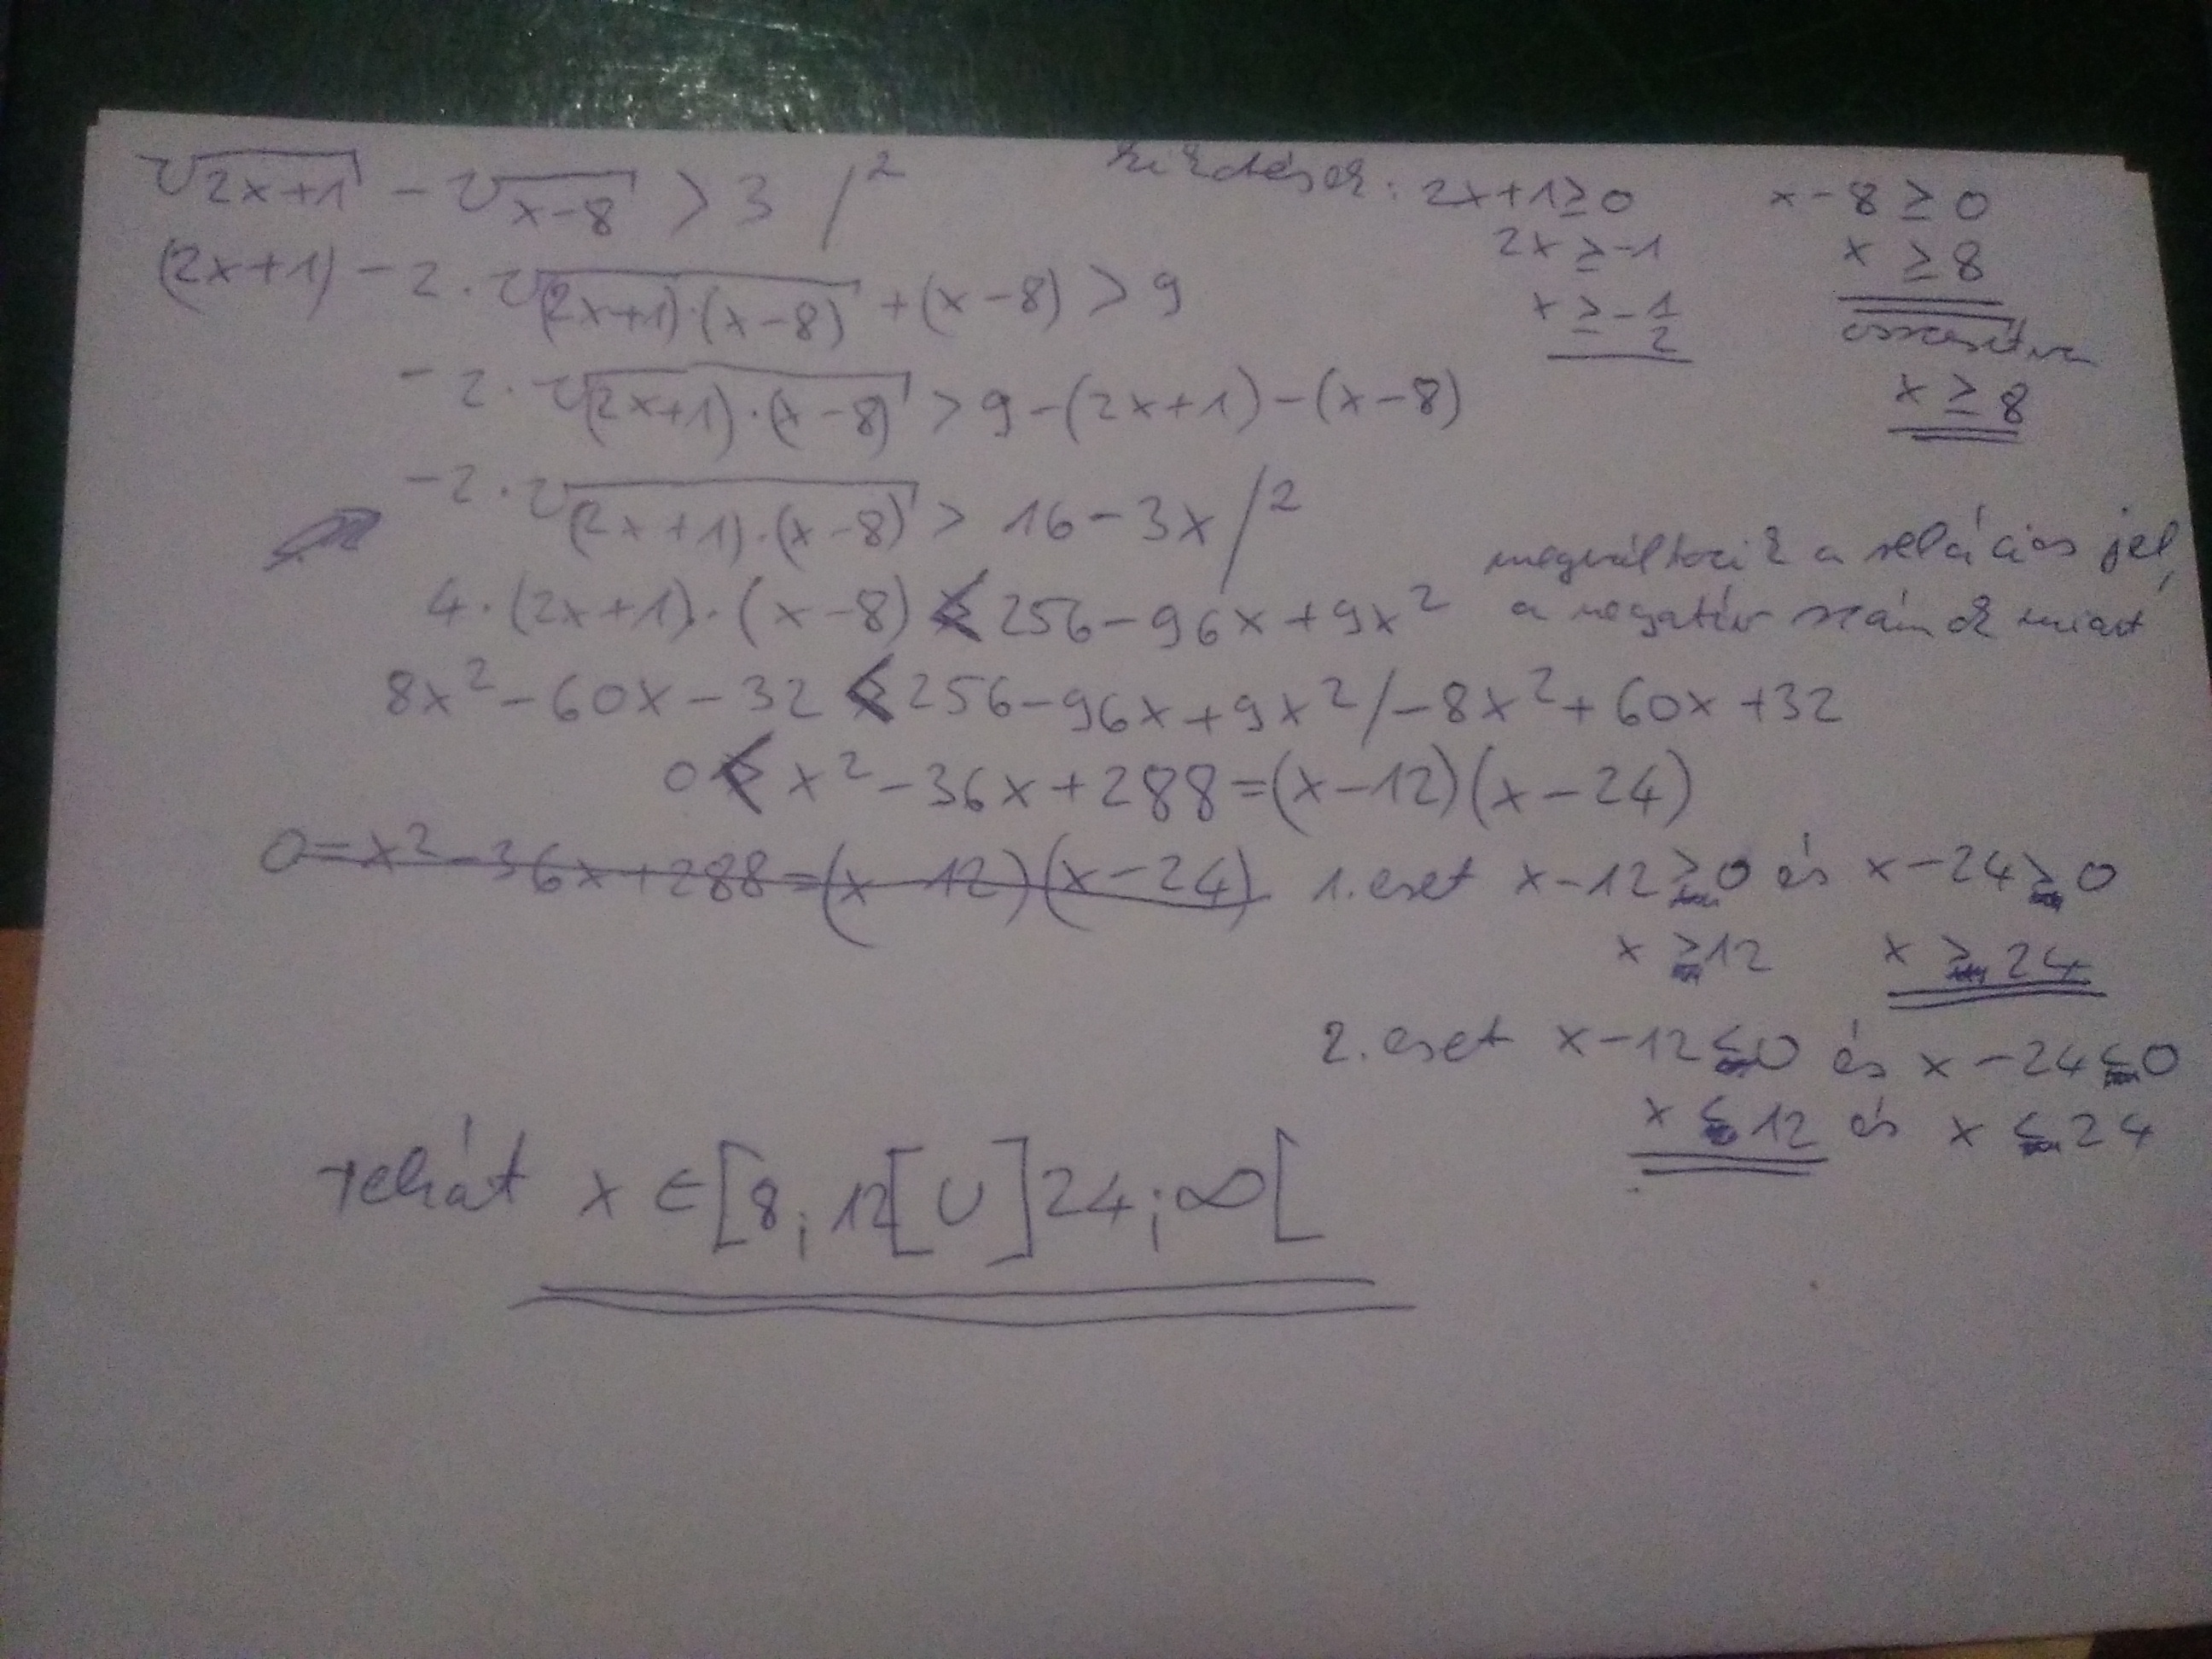 √(2x+1) - √(x-8) > 3 /²
kikötések: 2x+1≥0 x-8≥0
2x≥-1 x≥8
x≥-1/2 összesítve
x≥8
(2x+1) - 2·√((2x+1)·(x-8)) + (x-8) > 9
-2·√((2x+1)·(x-8)) > 9-(2x+1)-(x-8)
-2·√((2x+1)·(x-8)) > 16-3x /²
megváltozik a relációs jel,
a negatív számok miatt
4·(2x+1)·(x-8) < 256-96x+9x²
8x²-60x-32 < 256-96x+9x² /-8x²+60x+32
0 < x²-36x+288=(x-12)(x-24)
0=x²-36x+288=(x-12)(x-24)
1. eset x-12>0 és x-24>0
x>12 x>24
2. eset x-12<0 és x-24<0
x<12 és x<24
tehát x∈[8;12[∪]24;∞[